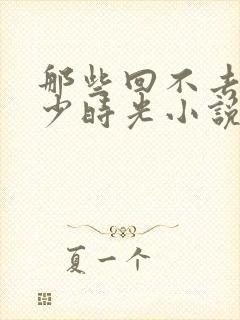 那些回不去
少时光小说
夏一个